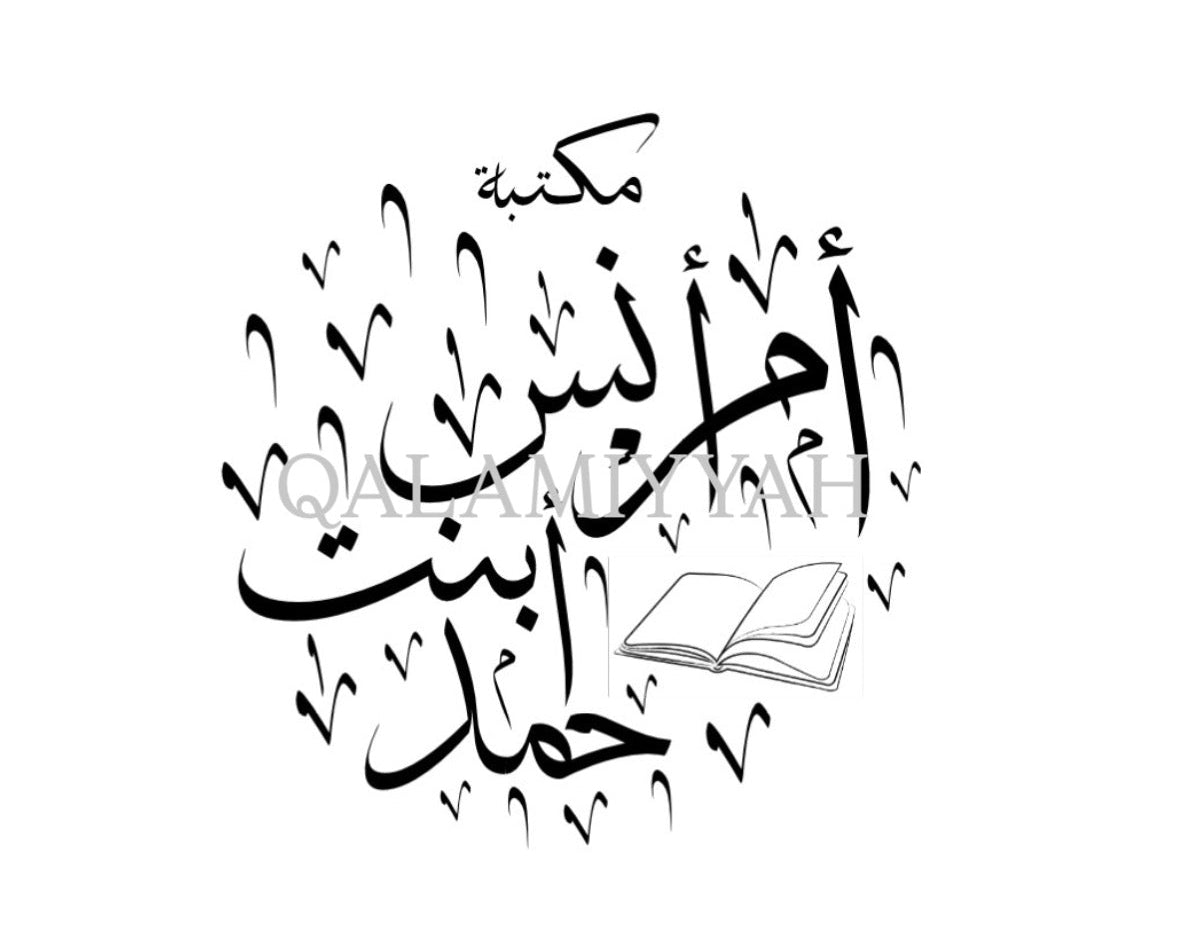 مكتبة
أم أنيس
QALAMIYYAH
بنت أحمد